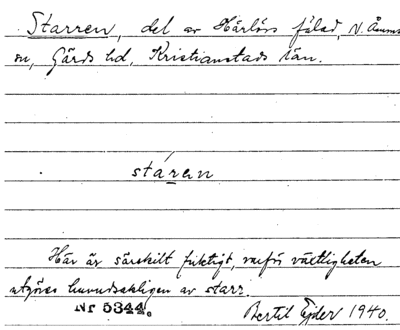 Starren, del av Härlövs fälad, N. Åsums
sn, Gärds hd, Kristianstads län.
stáren
Här är särskilt fuktigt, varför växtligheten
utgöres huvudsakligen av starr.
Nr 5344.
Bertil Ejder 1940.